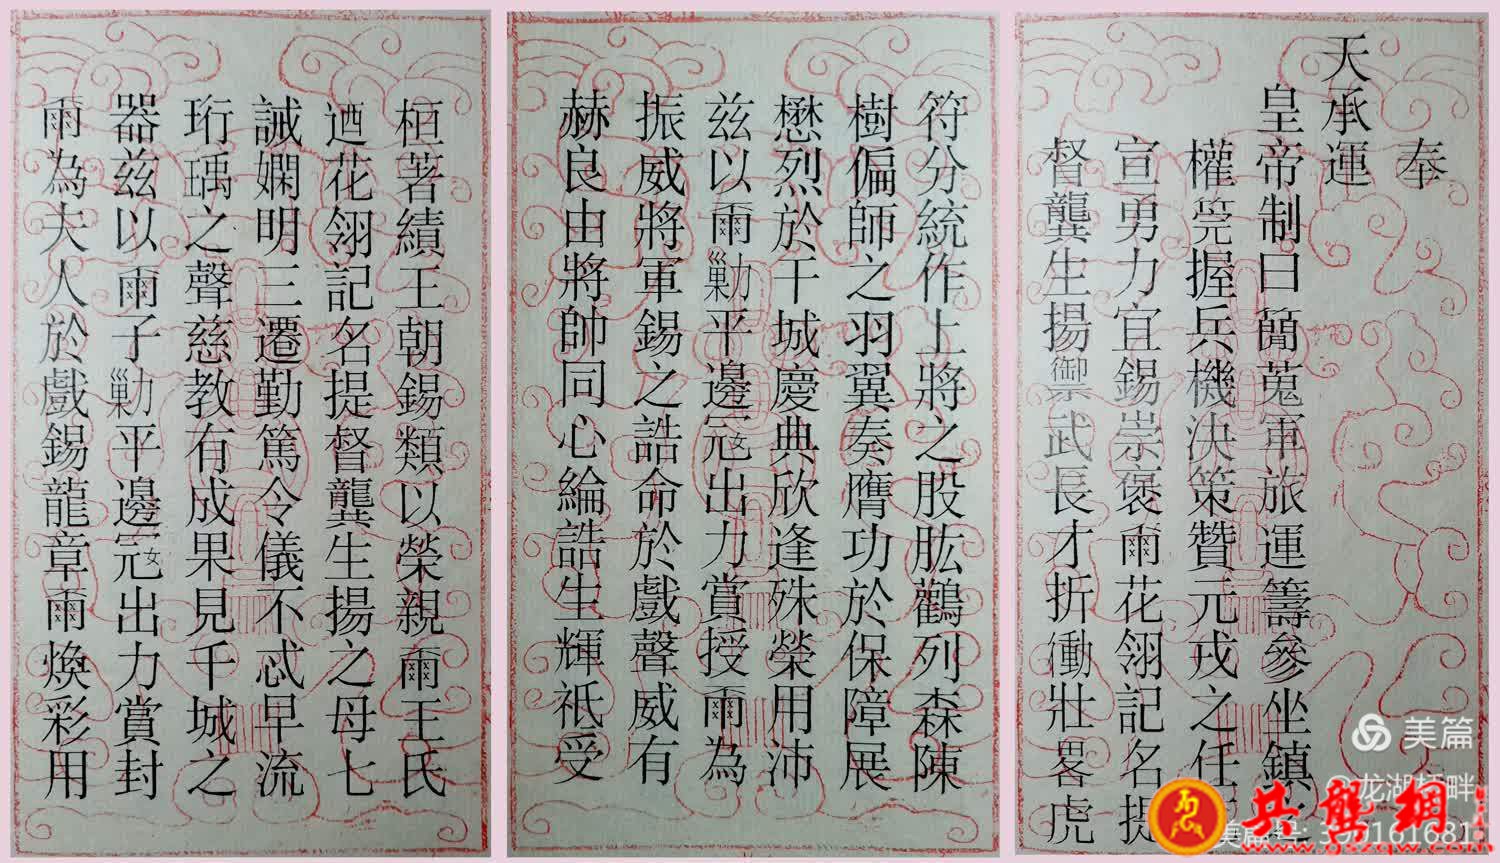 奉
天承運
皇帝制曰簡蒐軍旅運籌參坐鎮之
權筦握兵機決策贊元戎之任
宣勇力宜錫崇褒爾花翎記名提
督龔生揚禦武長才折衝壯畧虎
符分統作上將之股肱鸛列森陳
樹偏師之羽翼奏膺功於保障展
懋烈於干城慶典欣逢殊榮用沛
茲以爾勦平邊寇出力賞授爾為
振威將軍錫之誥命於戲聲威有
赫良由將帥同心綸誥生輝祇受
桓著績王朝錫類以榮親爾王氏
迺花翎記名提督龔生揚之母七
誡嫻明三遷勤篤令儀不忒早流
珩瑀之聲慈教有成果見千城之
器茲以爾子勦平邊寇出力賞封
爾為夫人於戲錫龍章爾煥彩用
美篇
@龙湖桥畔
共龔網